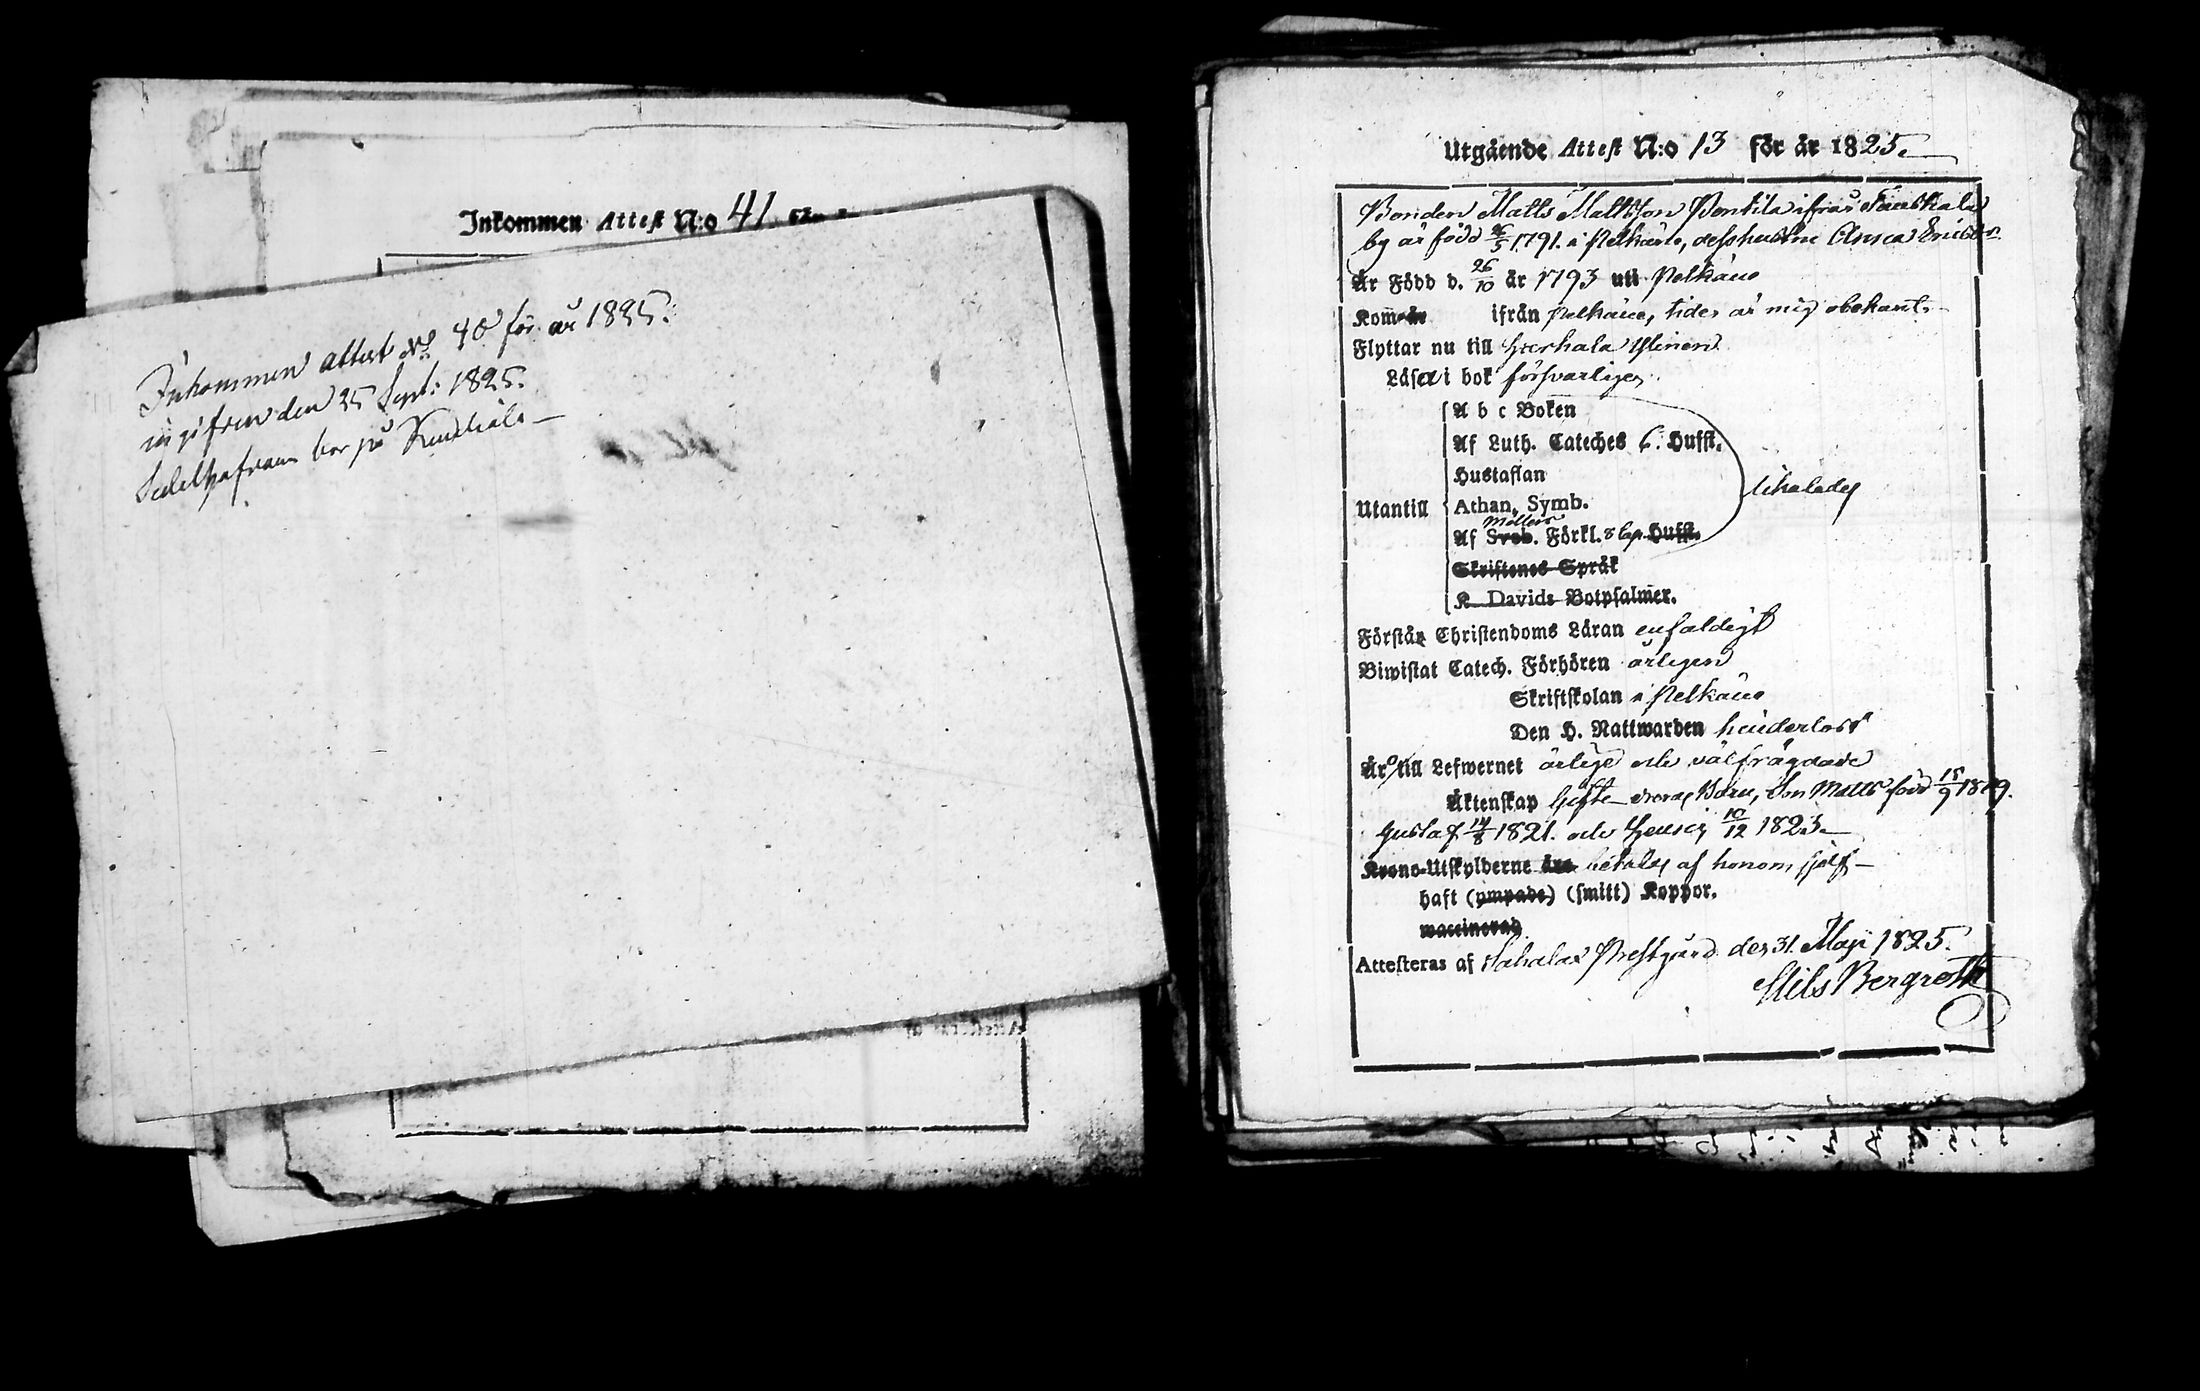 Inkommen Attest N:o 41
Inkommen attest No 40 för år 1825.
ingifven den 25 Sept: 1825.
bor på
Utgående Attest N:o 13 för år 1825.
Bonden Matts Mattsson Pentila ifrån
by är född 26/5 1791. i Pelkäne, dess hustru Anna Ericsdr
Är Född d. 26/10 år 1793 uti Pelkäne
Kom ifrån Pelkäne, tiden är mig obekant.
Flyttar nu till
Läsa i bok försvarligen.
A b c Boken
Af Luth. Cateches 6. Hufst.
Hustaflan
Utantill Athan. Symb. likaledes
Möllers
Af Sveb. Förkl. 8 Cap. Hufst.
Skriftenes Språk
K Davids Botpsalmer.
Förstår Christendoms Läran enfaldigt
Biwistat Catech. Förhören årligen
Skriftskolan i Pelkäne
Den H. Nattwarden hinderlöst
Äro till Lefwernet ärlige och välfrägdade
Äktenskap Gifte deras Barn, Son Matts född 15/9 1819.
Gustaf 14/8 1821. och 10/12 1823.
Krono-Utskylderne äro betalas af honom sjelf
haft (ympade) (smitt) Koppor.
waccinerad
Attesteras af Sahalax Prestgård den 31. Maji 1825.
Nils Bergroth
Attesteras af